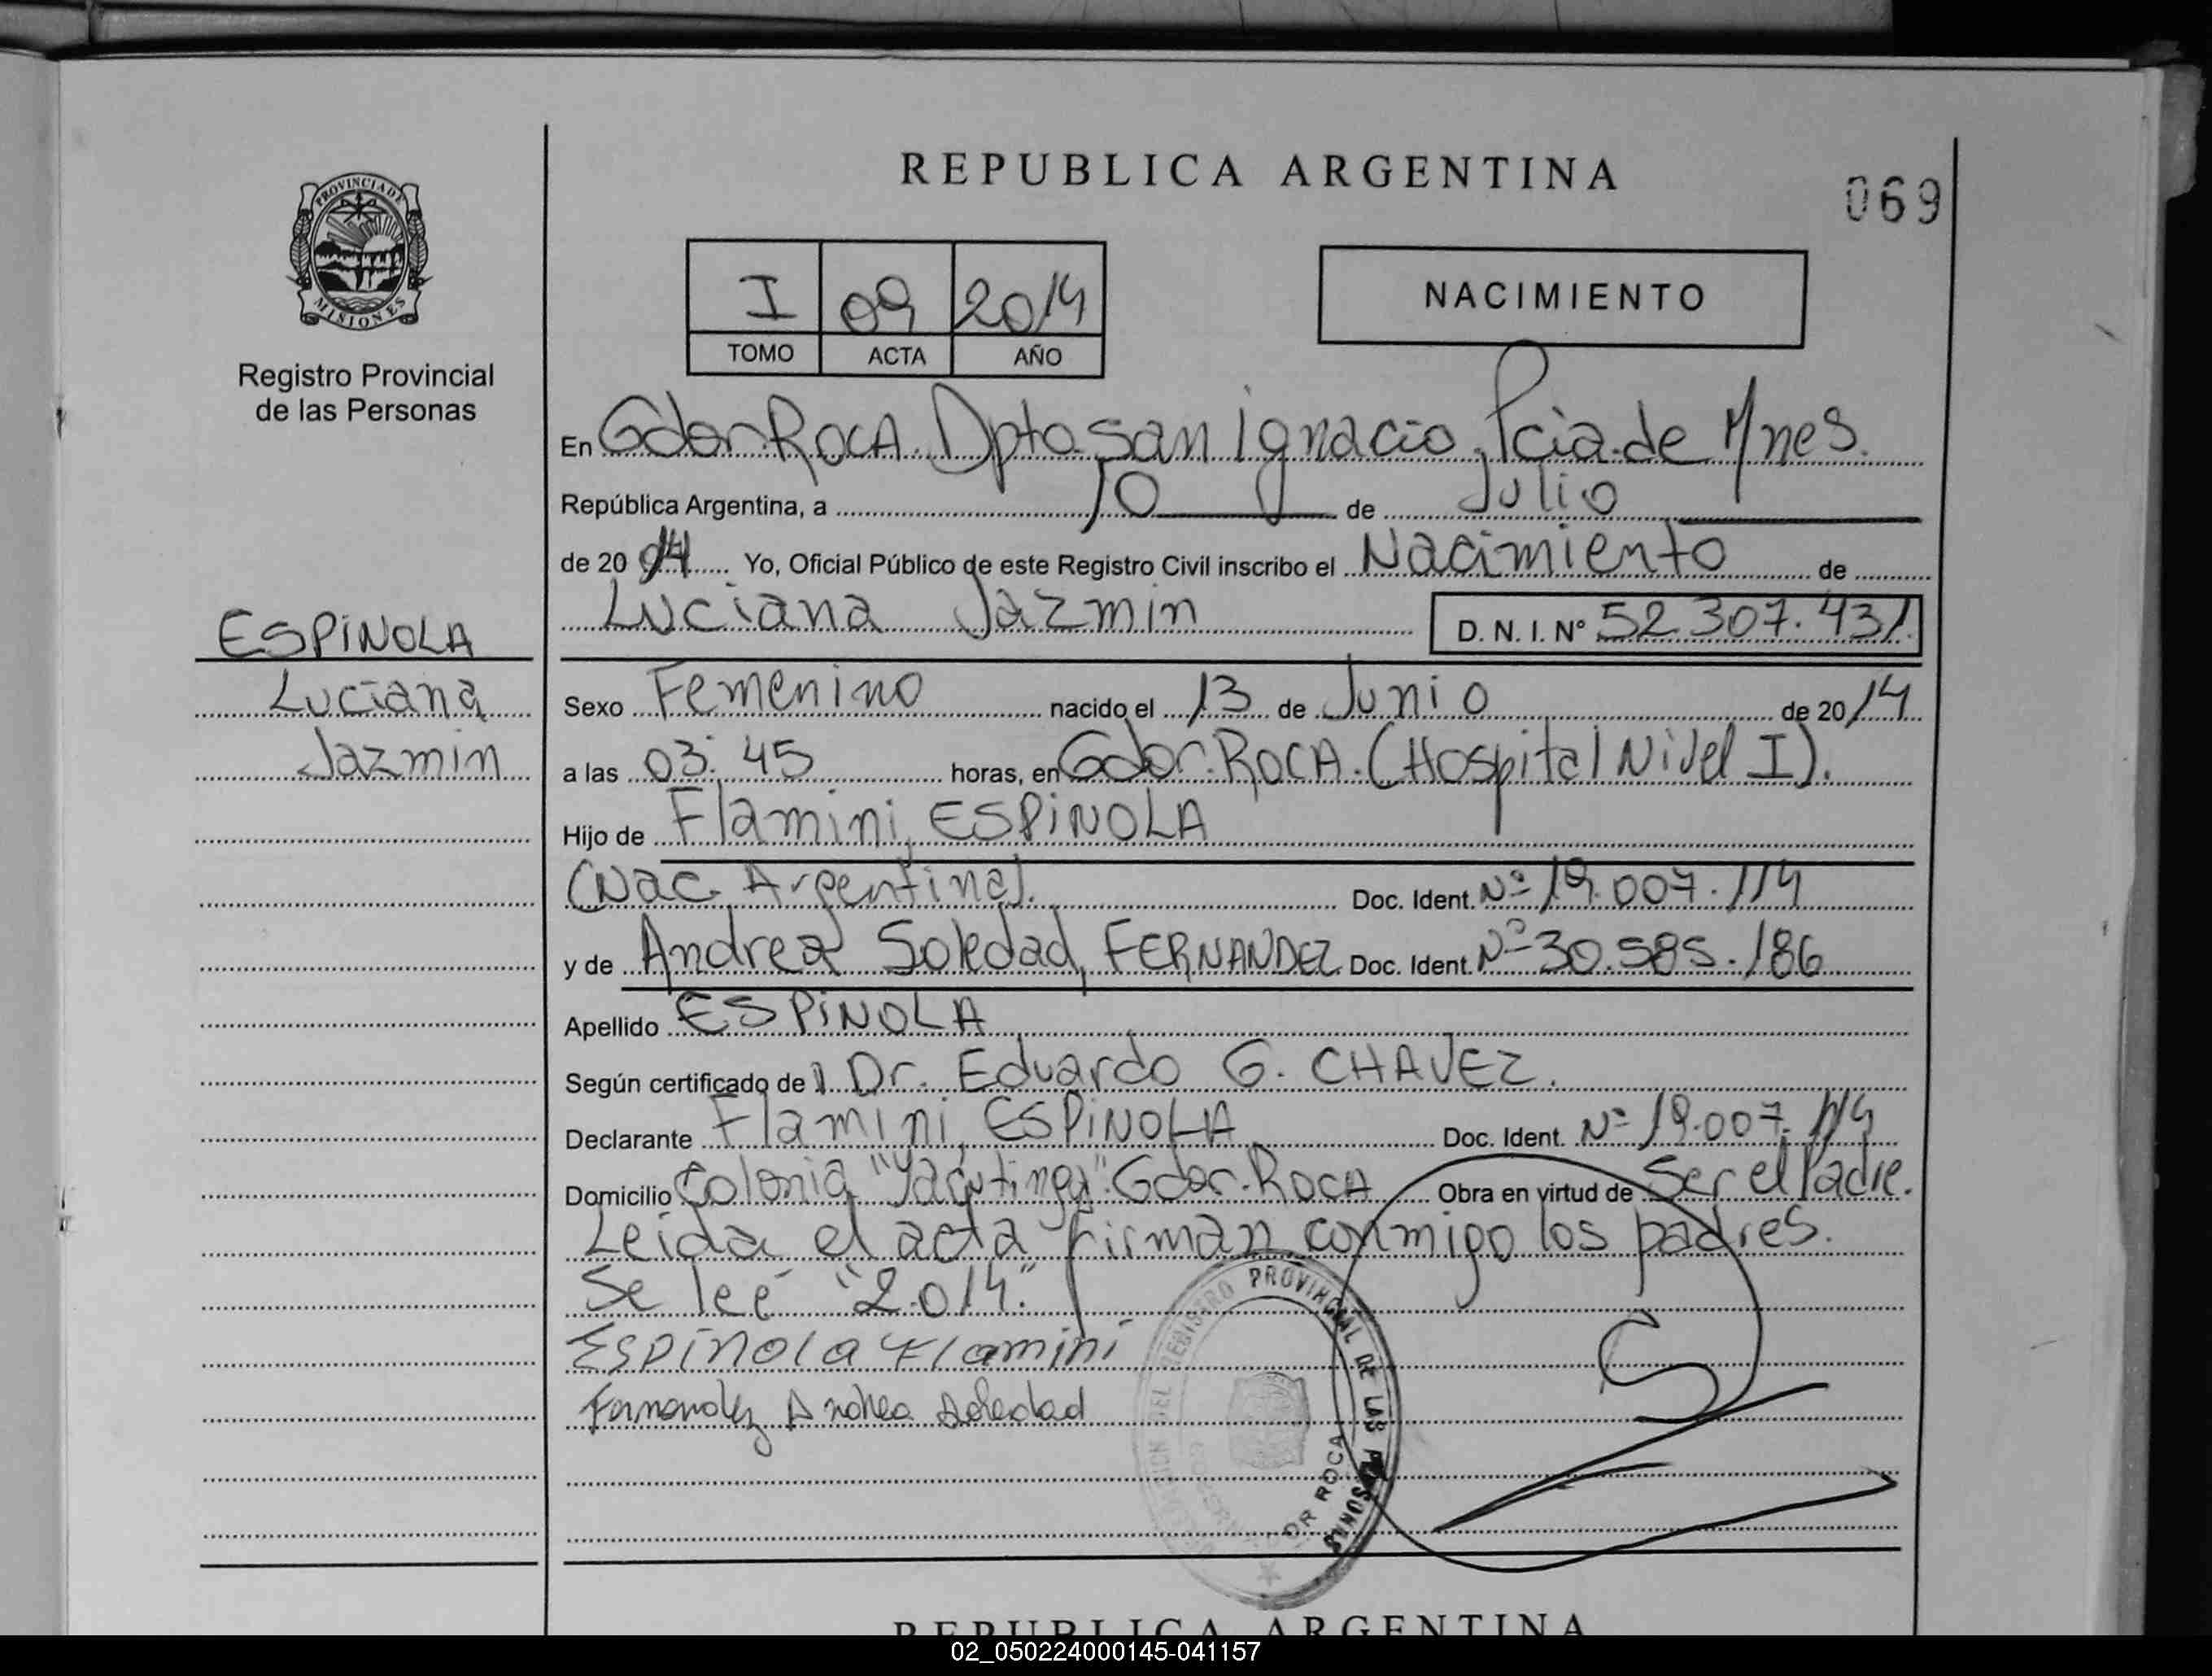 REPUBLICA ARGENTINA
069
PROVINCIA DE
MISIONES
Registro Provincial
de las Personas
I 09 2014
TOMO ACTA AÑO
NACIMIENTO
En Gdor. ROCA. Dpto. San Ignacio, Pcia. de Mnes.
República Argentina, a 10 de Julio
de 20 14 Yo, Oficial Público de este Registro Civil inscribo el Nacimiento de
Luciana Jazmin D. N. I. N° 52.307.431.
ESPINOLA
Luciana
Jazmin
Sexo Femenino nacido el 13 de Junio de 20 14
a las 03:45 horas, en Gdor. ROCA. (Hospital Nivel I).
Hijo de Flamini, ESPINOLA
(Nac. Argentina). Doc. Ident. Nº 19.007.114
y de Andrea Soledad, FERNANDEZ Doc. Ident. Nº 30.585.186
Apellido ESPINOLA
Según certificado del Dr. Eduardo G. CHAVEZ.
Declarante Flamini, ESPINOLA Doc. Ident. Nº 19.007.114
Domicilio Colonia "Yacutinga". Gdor. ROCA Obra en virtud de Ser el Padre.
Leida el acta firman conmigo los padres.
Se leé "2.014."
Espínola Flamini
Fernandez Andrea Soledad
REGISTRO PROVINCIAL DE LAS PERSONAS
OR ROCA
REPUBLICA ARGENTINA
02_050224000145-041157